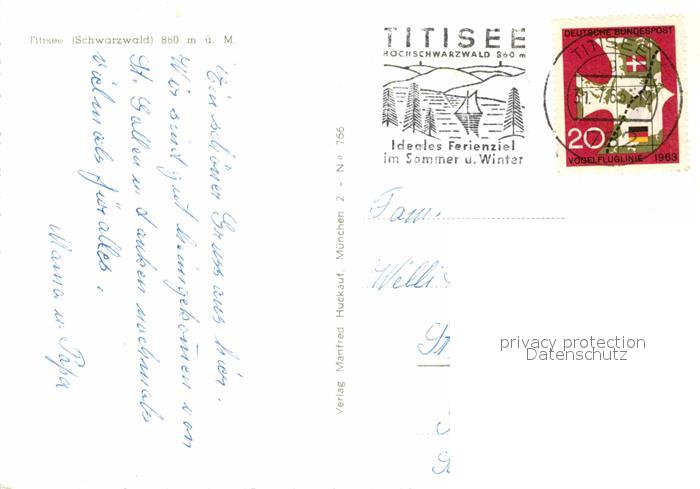 Titisee (Schwarzwald) 860 m ü. M.
Ein schöner Gruss aus hier.
Wir sind gut heimgekommen von
St. Gallen u. danken nochmals
vielmals für alles.
Mama u. Papa
Verlag Manfred Huckauf, München 2 - Nº 766
TITISEE
HOCHSCHWARZWALD 860 m
Ideales Ferienziel
im Sommer u. Winter
TITISEE
DEUTSCHE BUNDESPOST
20
VOGELFLUGLINIE 1963
Fam.
Willi
St
privacy protection
Datenschutz